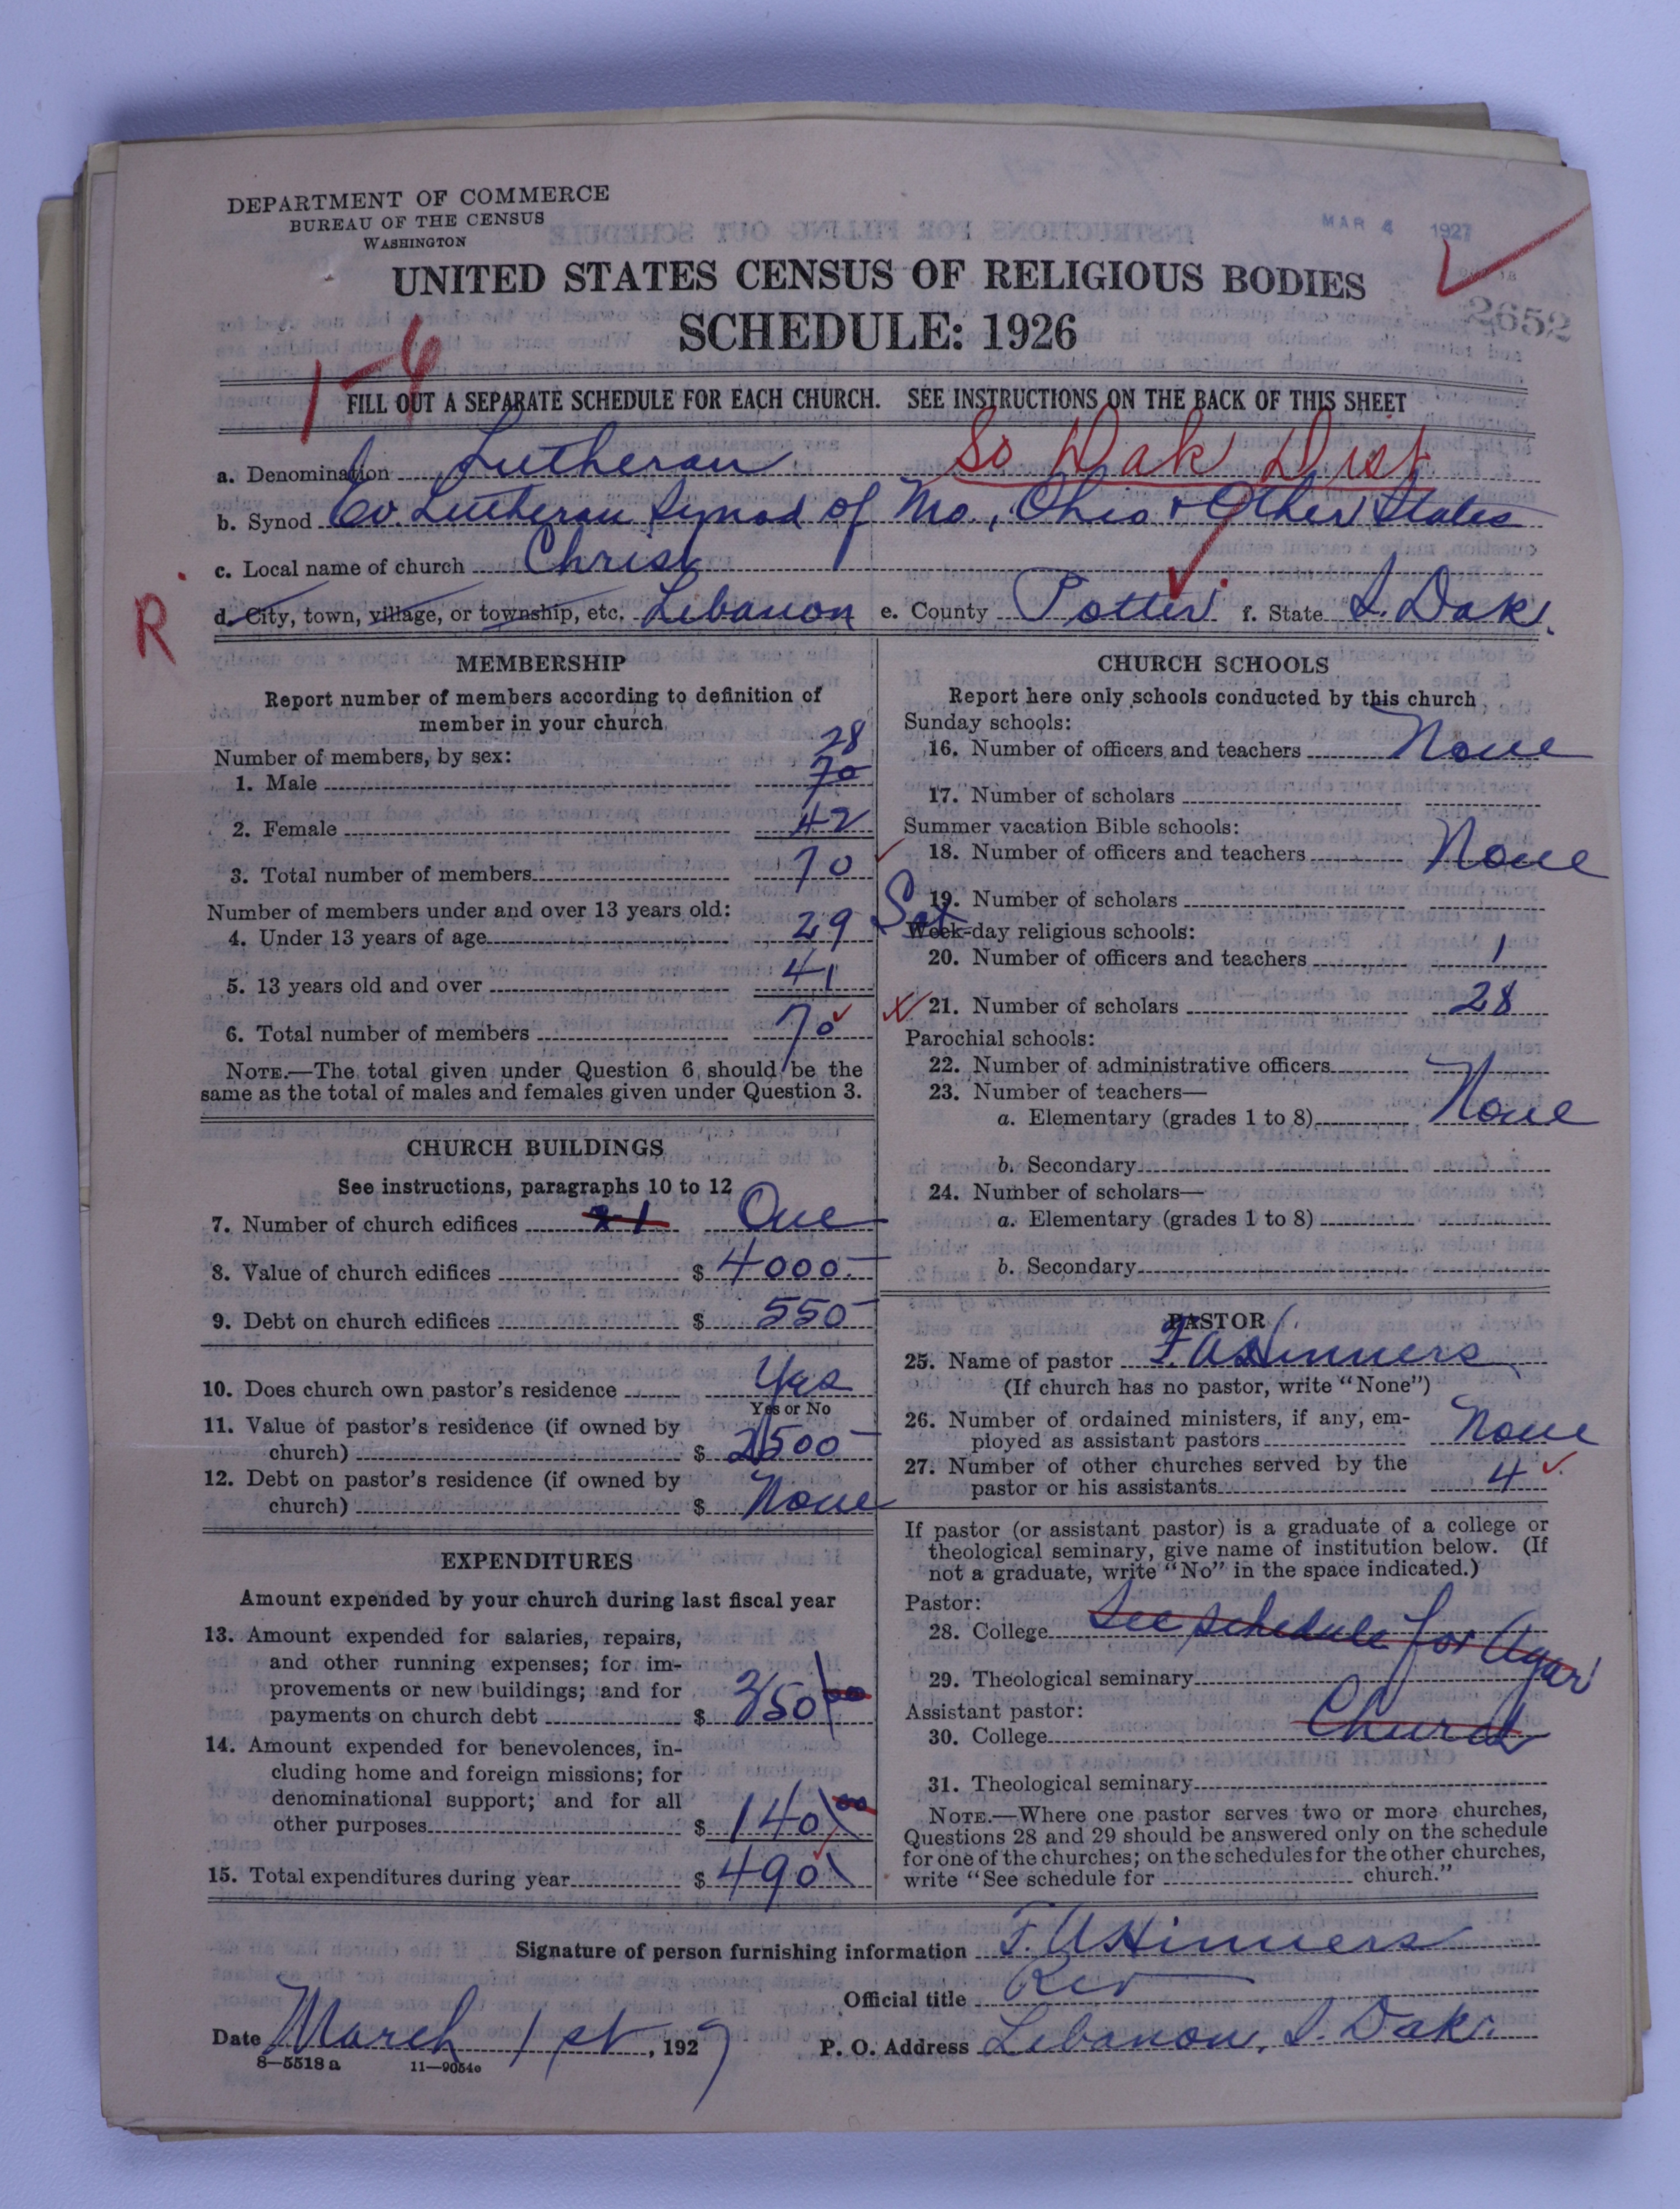 DEPARTMENT OF COMMERCE
BUREAU OF THE CENSUS
WASHINGTON
MAR 4 1927
UNITED STATES CENSUS OF RELIGIOUS BODIES
SCHEDULE: 1926
2652
1-6
FILL OUT A SEPARATE SCHEDULE FOR EACH CHURCH. SEE INSTRUCTIONS ON THE BACK OF THIS SHEET
So Dak Dist
a. Denomination Lutheran
b. Synod Ev. Lutheran Synod of Mo., Ohio & Other States
c. Local name of church Christ
R
d. City, town, village, or township, etc. Lebanon e. County Potter f. State S. Dak.
MEMBERSHIP
Report number of members according to definition of
member in your church
Number of members, by sex:
28
1. Male 70
2. Female 42
3. Total number of members 70
Number of members under and over 13 years old:
4. Under 13 years of age 29
5. 13 years old and over 41
6. Total number of members 70
NOTE.—The total given under Question 6 should be the
same as the total of males and females given under Question 3.
CHURCH BUILDINGS
See instructions, paragraphs 10 to 12
7. Number of church edifices One
8. Value of church edifices $ 4000.-
9. Debt on church edifices $ 550-
10. Does church own pastor's residence Yes
Yes or No
11. Value of pastor's residence (if owned by
church) $ 2500-
12. Debt on pastor's residence (if owned by
church) $ None
EXPENDITURES
Amount expended by your church during last fiscal year
13. Amount expended for salaries, repairs,
and other running expenses; for im-
provements or new buildings; and for
payments on church debt $ 350 00
14. Amount expended for benevolences, in-
cluding home and foreign missions; for
denominational support; and for all
other purposes $ 140 00
15. Total expenditures during year $ 490
CHURCH SCHOOLS
Report here only schools conducted by this church
Sunday schools:
16. Number of officers and teachers None
17. Number of scholars
Summer vacation Bible schools:
18. Number of officers and teachers None
19. Number of scholars
Sat
Week-day religious schools:
20. Number of officers and teachers 1
21. Number of scholars 28
Parochial schools:
22. Number of administrative officers
23. Number of teachers—
a. Elementary (grades 1 to 8) None
b. Secondary
24. Number of scholars—
a. Elementary (grades 1 to 8)
b. Secondary
PASTOR
25. Name of pastor F. A. Hinners
(If church has no pastor, write "None")
26. Number of ordained ministers, if any, em-
ployed as assistant pastors None
27. Number of other churches served by the
pastor or his assistants 4
If pastor (or assistant pastor) is a graduate of a college or
theological seminary, give name of institution below. (If
not a graduate, write "No" in the space indicated.)
Pastor:
28. College See schedule for Agar
29. Theological seminary
Assistant pastor:
30. College Church
31. Theological seminary
NOTE.—Where one pastor serves two or more churches,
Questions 28 and 29 should be answered only on the schedule
for one of the churches; on the schedules for the other churches,
write "See schedule for church."
Signature of person furnishing information F. A. Hinners
Official title Rev
Date March 1st, 1927 P. O. Address Lebanon, S. Dak.
8—5518 a 11—9054c